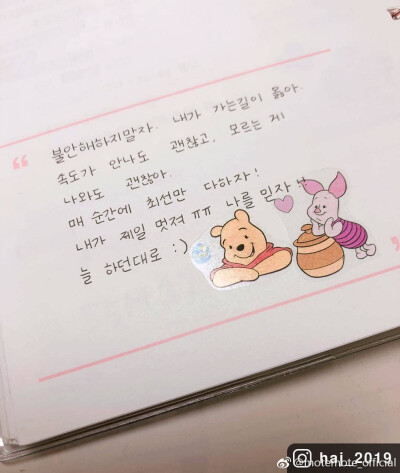 “
불안해하지말자. 내가 가는길이 옳아.
속도가 안나도 괜찮고, 모르는 게
나와도 괜찮아.
매 순간에 최선만 다하자!
내가 제일 멋져 ㅠㅠ 나를 믿자 :)
늘 하던대로 :)
”
hai_2019
@motemote_official